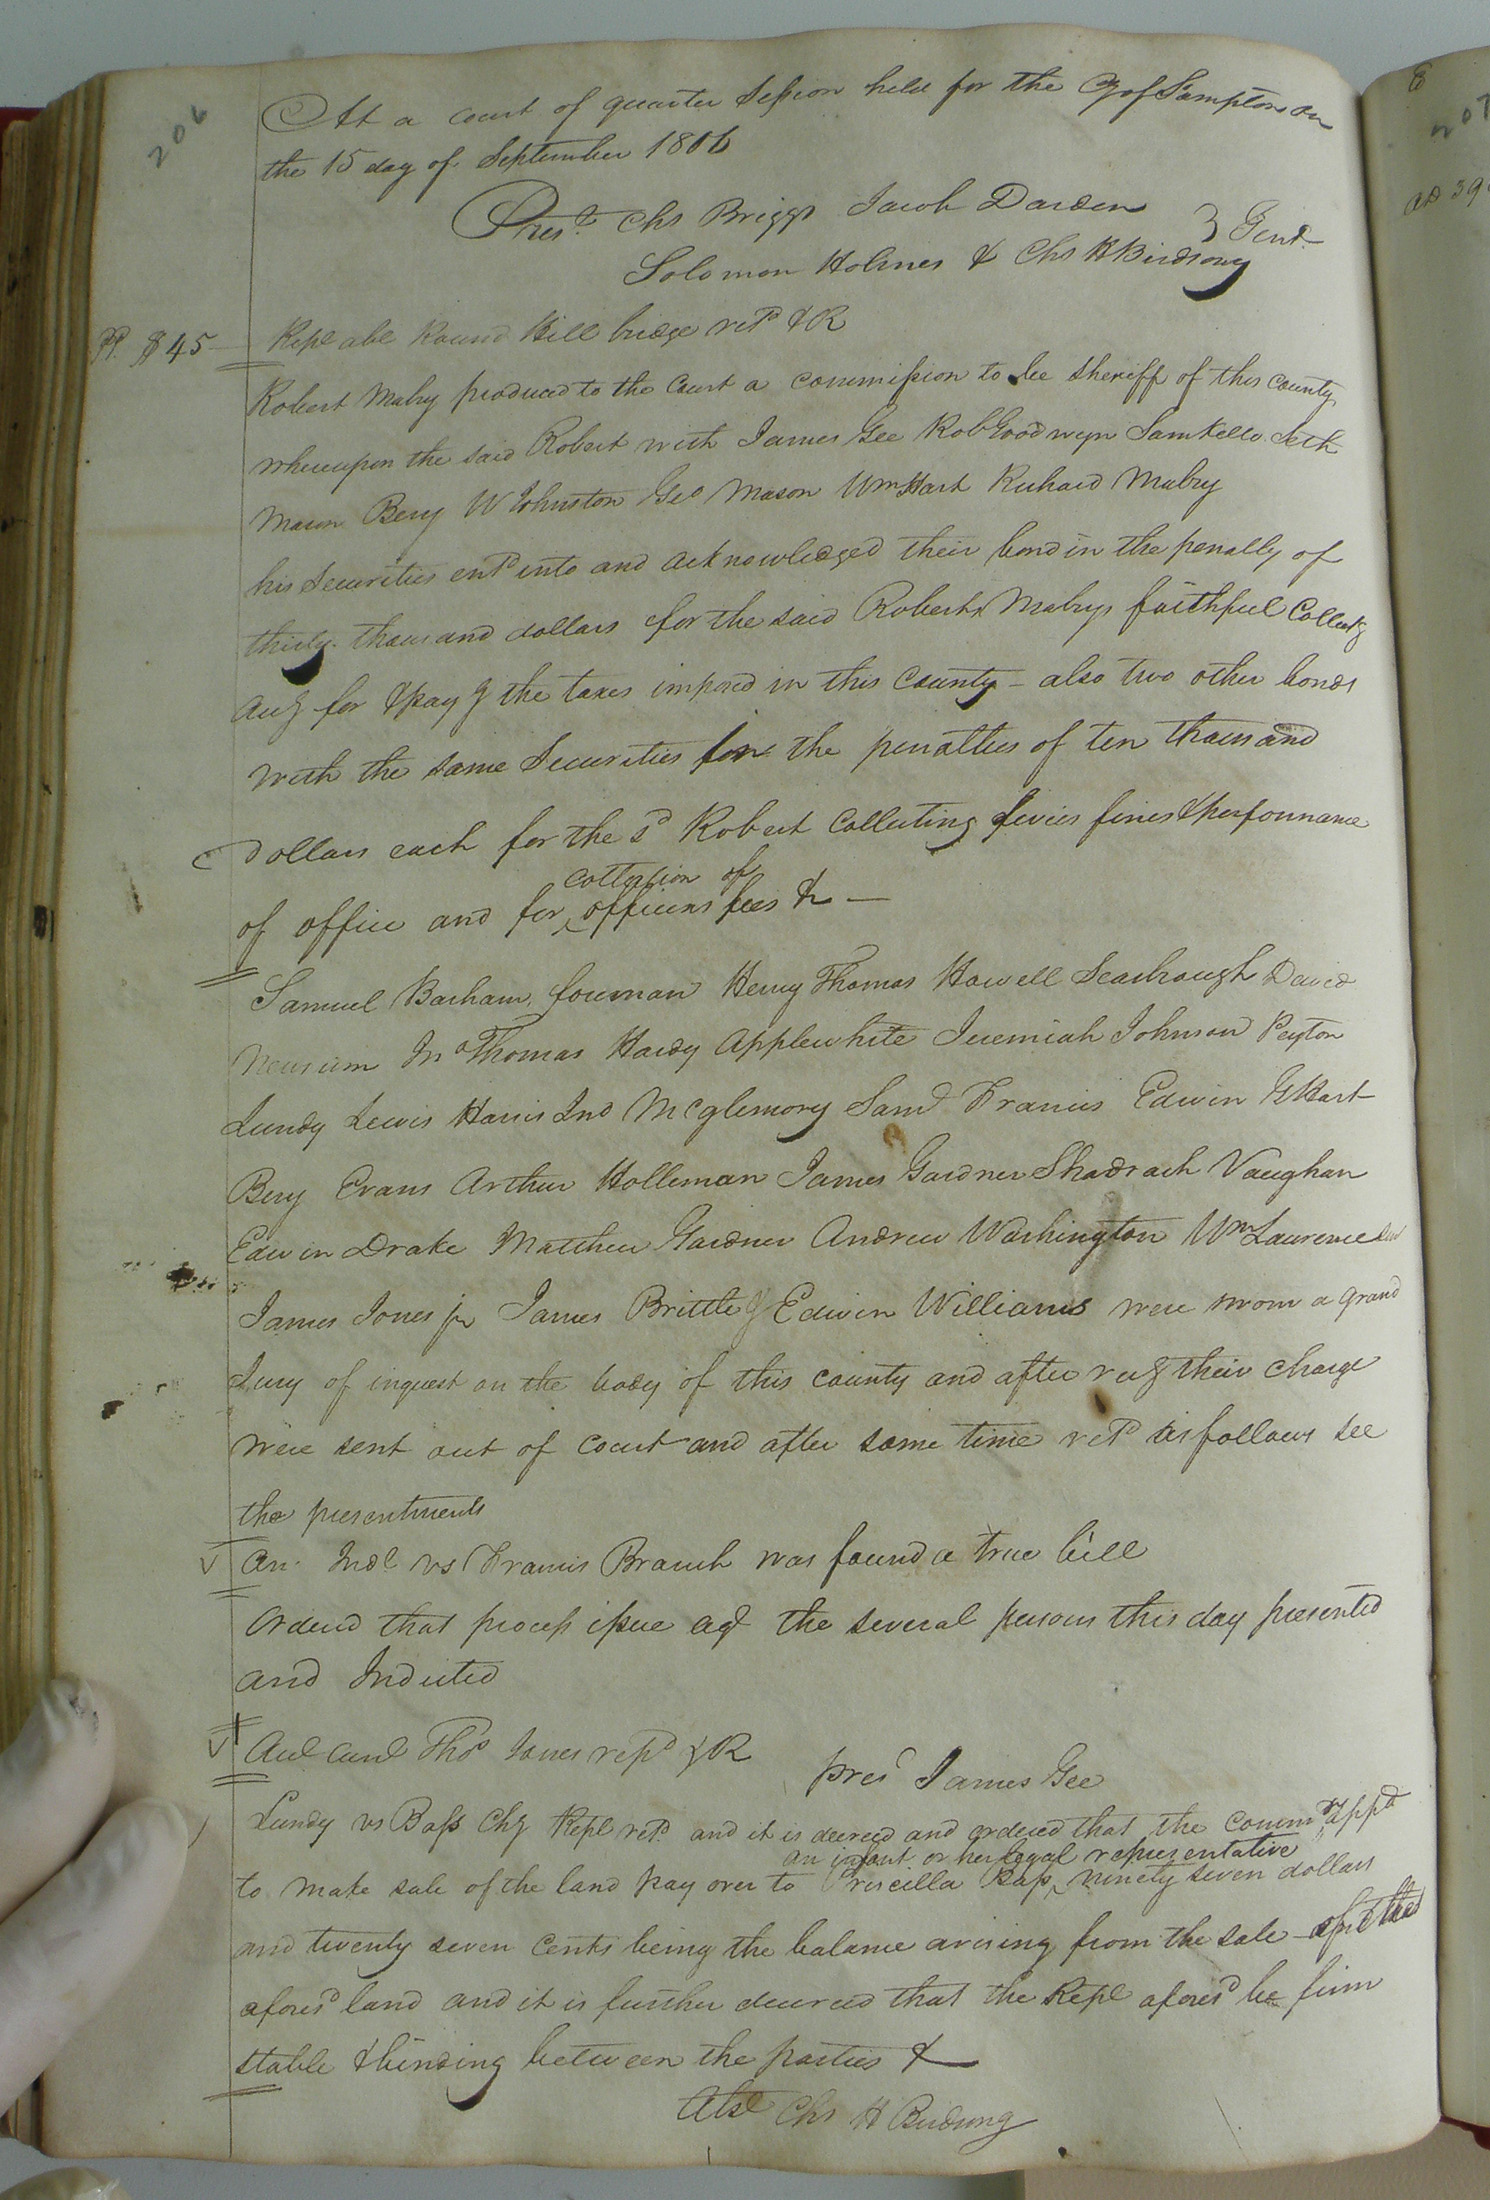 206
At a court of quarter Session held for the Cy of Sampton on
the 15 day of September 1806
Prest. Chs Briggs Jacob Darden
Solomon Holmes & Chs H Birdsong } Gent.
PP. $45 Rept abt Round Hill bridge retd & R
Robert Mabry produced to the Court a commission to be Sheriff of this county
whereupon the said Robert with James Gee Rob Goodwyn Sam Kello Seth
Mason Beny W Johnston Geo Mason Wm Hart Richard Mabry
his Securities entd into and acknowledged their bond in the penalty of
thirty thousand dollars for the said Roberts Mabrys faithful Collectg
accg for & payg the taxes imposed in this County - also two other bonds
with the same Securities in the penalties of ten thousand
dollars each for the sd Robert Collecting levies fines & performance
collection of
of office and for officers fees & —
Samuel Barham, foreman Henry Thomas Howell Scarbrough David
Newsum Jno Thomas Hardy Applewhite Jeremiah Johnson Peyton
Lundy Lewis Harris Jno McGlemory Saml Francis Edwin G Hart
Beny Evans Arthur Holleman James Gardner Shadrach Vaughan
Edwin Drake Matthew Gardner Andrew Washington Wm Lawrence
James Jones jr James Brittle & Edwin Williams were sworn a grand
Jury of inquest on the body of this county and after recg their charge
were sent out of court and after some time retd as follows see
the presentments
An Indt vs Francis Branch was found a true bill
Ordered that process issue agt the several persons this day presented
and Indicted
Aud Thos Jones retd & R
Pres James Gee
Lundy vs Bass Chy Rept retd and it is decreed and ordered that the Commrs appd
an infant or her legal representative
to make sale of the land pay over to Priscilla Bass ninety seven dollars
and twenty seven Cents being the balance arising from the sale of the
aforesd land and it is further decreed that the Rept aforesd be firm
stable & binding between the parties &
Chs H Birdsong
207